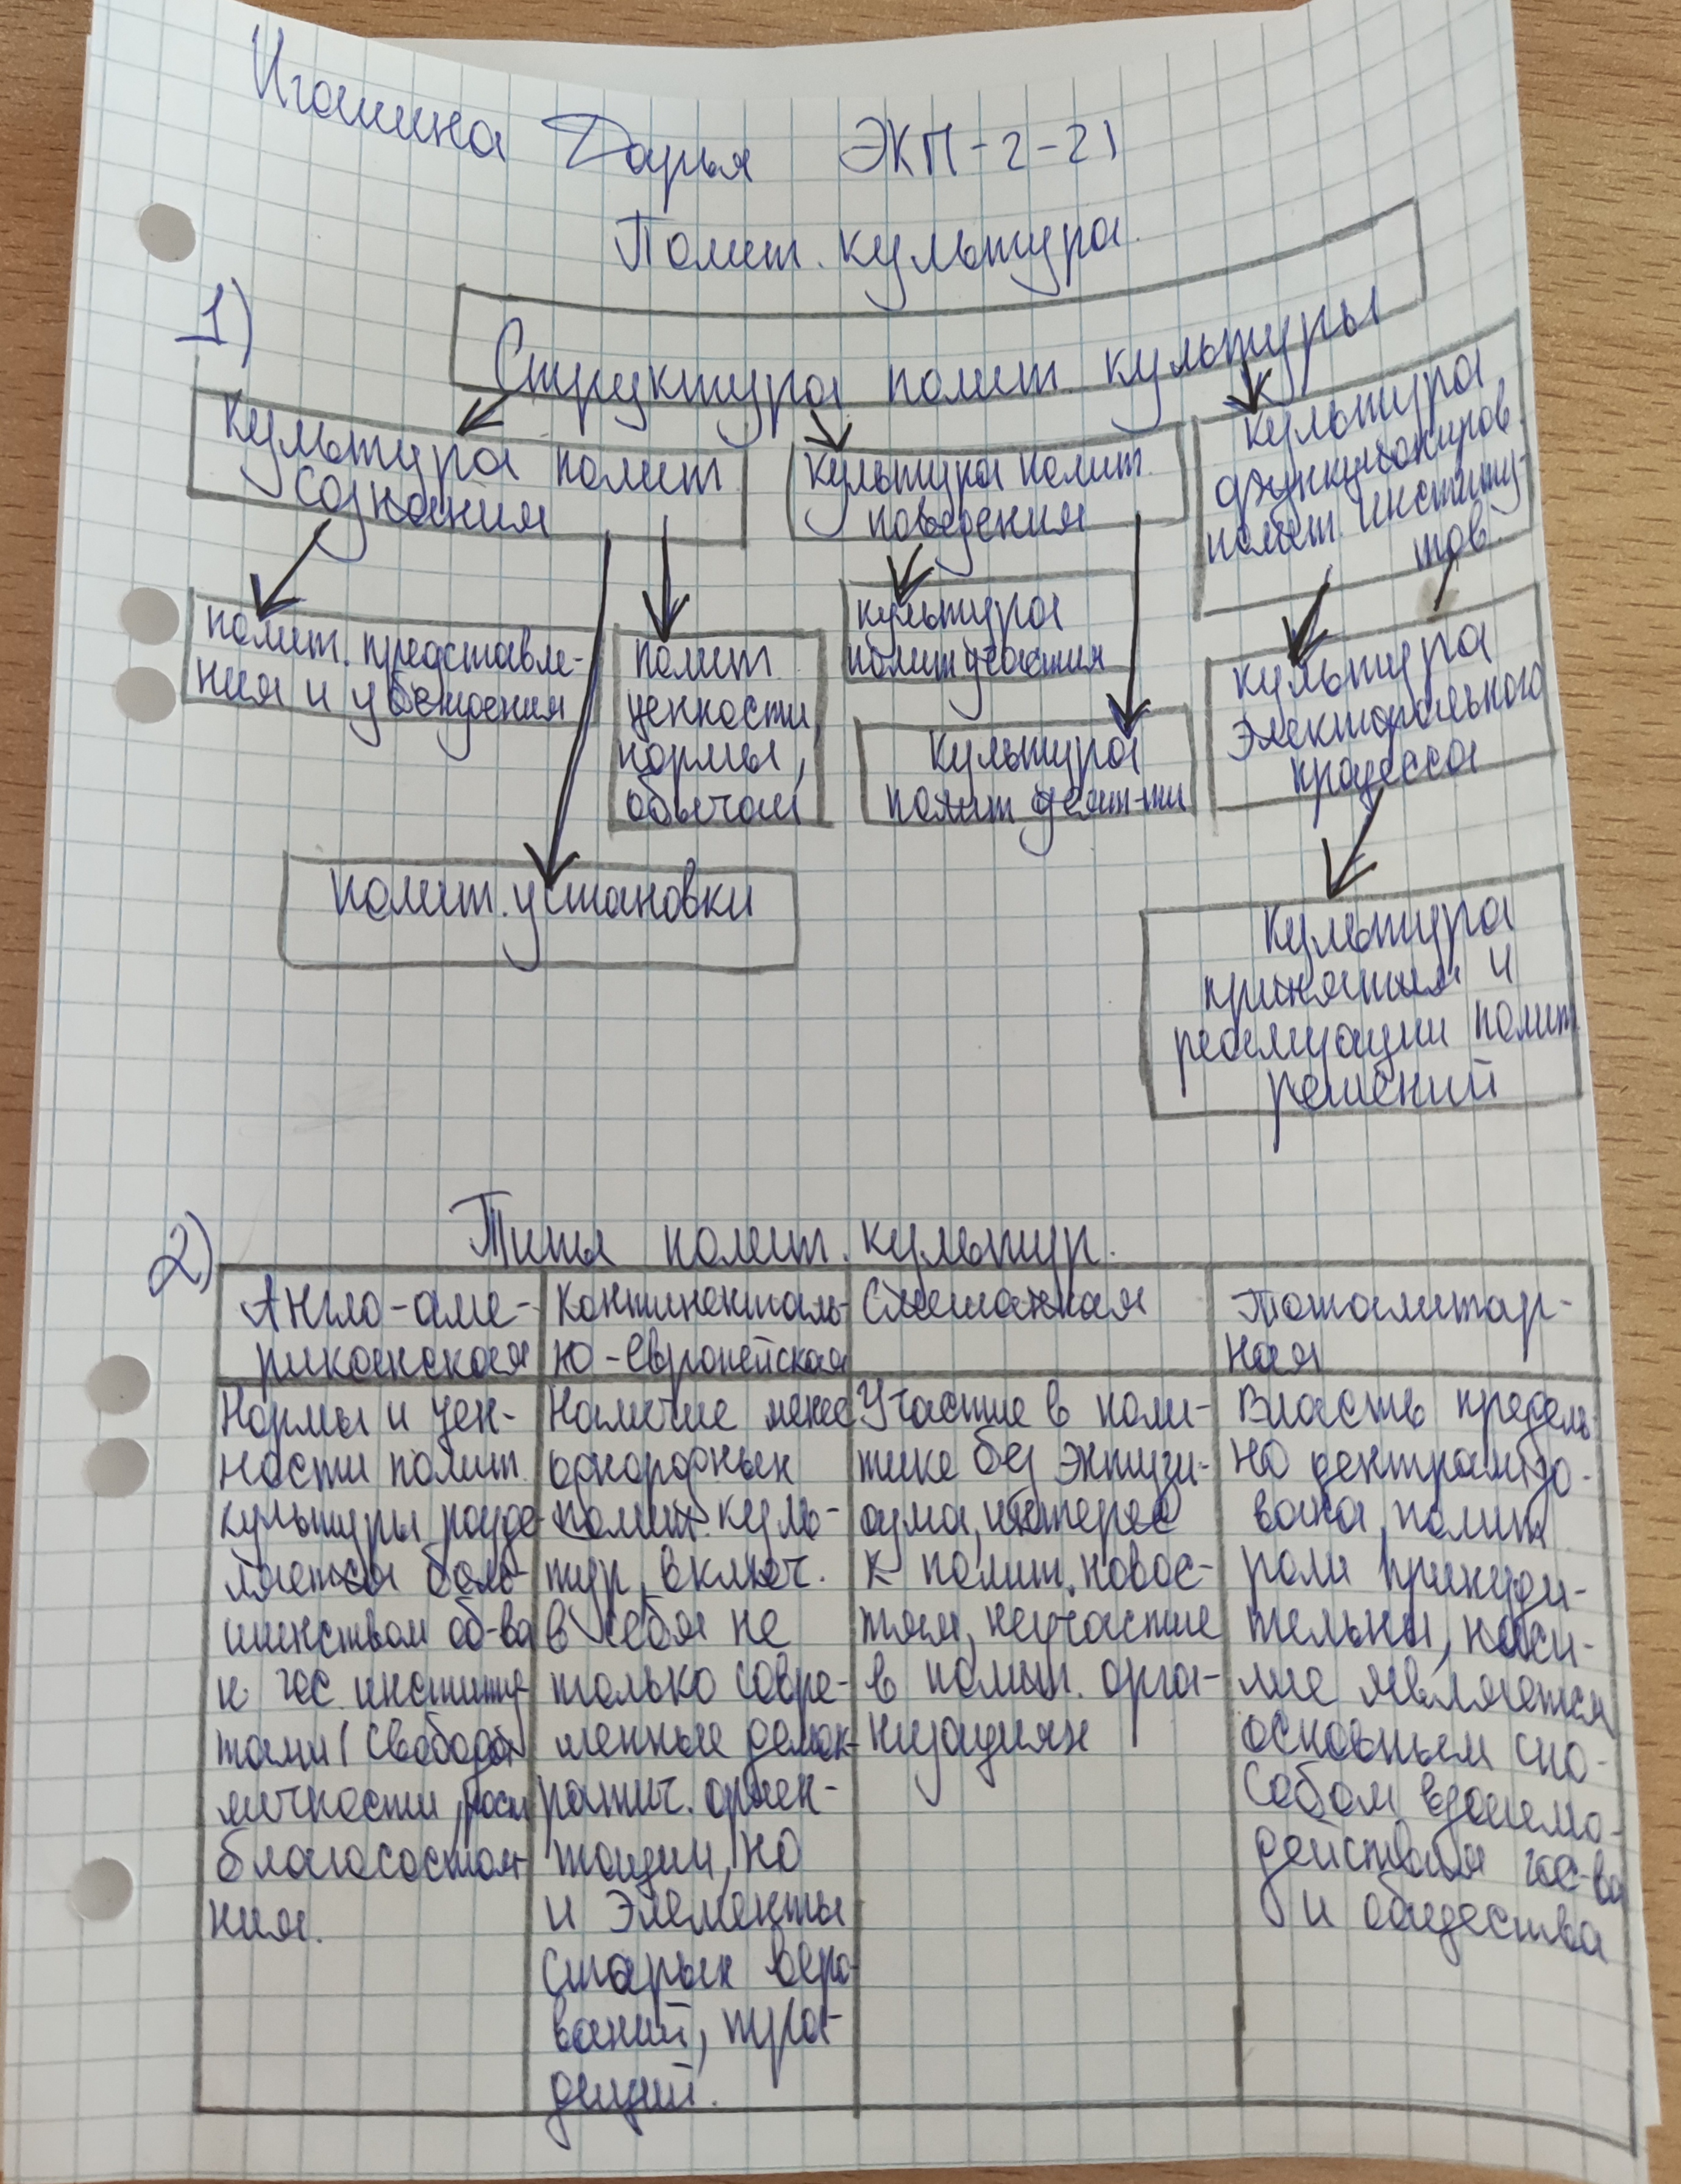 Игошина Дарья ЭКП-2-21
Полит. культура.
1)
Структура полит. культуры
культура полит
сознания
культура полит.
поведения
культура
функциониров.
полит. институ-
тов.
полит. представле-
ния и убеждения
полит
ценности,
нормы,
обычаи
культура
полит участия
культура
полит деят-ти
культура
электорального
процесса
полит. установки
культура
принятия и
реализации полит
решений
2)
Типы полит. культур.
Англо-аме-
риканская
Континенталь-
но-европейская
Смешанная
Тоталитар-
ная
Нормы и цен-
ности полит.
культуры разде-
ляется боль-
шинством об-ва
и гос. институ-
тами (свобода
личности, рост
благосостоя-
ния.
Наличие менее
однородных
полит. куль-
тур, включ.
в себя не
только совре-
менные демок-
ратич. ориен-
тации, но
и элементы
старых веро-
ваний, тра-
диций.
Участие в поли-
тике без энтузи-
азма, интерес
к полит. новос-
тям, неучастие
в полит. орга-
низациях
Власть предель-
но централизо-
вана, полит
роли принуди-
тельны, наси-
лие является
основным спо-
собом взаимо-
действия гос-ва
и общества